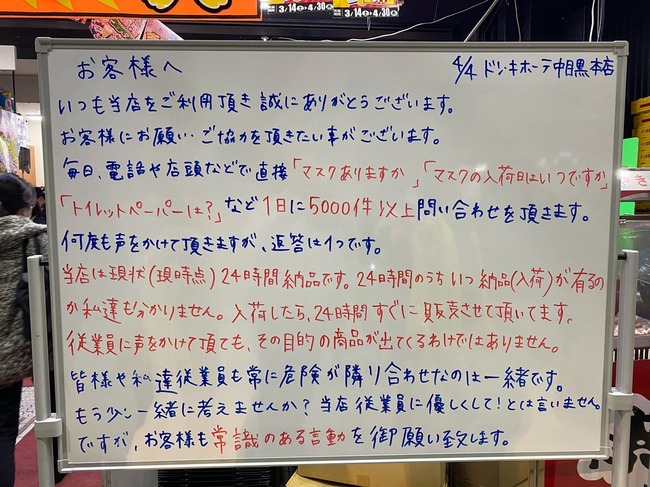 3/14 4/30
3/14 4/30
お客様へ 4/4 ドン・キホーテ中目黒本店
いつも当店をご利用頂き誠にありがとうございます。
お客様にお願い・ご協力を頂きたい事がございます。
毎日、電話や店頭などで直接「マスクありますか」「マスクの入荷日はいつですか」
「トイレットペーパーは?」など1日に5000件以上問い合わせを頂きます。
何度も声をかけて頂きますが、返答は1つです。
当店は現状(現時点)24時間納品です。24時間のうちいつ納品(入荷)が有るの
か私達も分かりません。入荷したら、24時間すぐに販売させて頂いてます。
従業員に声をかけて頂ても、その目的の商品が出てくるわけではありません。
皆様や私達従業員も常に危険が隣り合わせなのは一緒です。
もう少し一緒に考えませんか?当店従業員に優しくして!とは言いません。
ですが、お客様も常識のある言動を御願い致します。